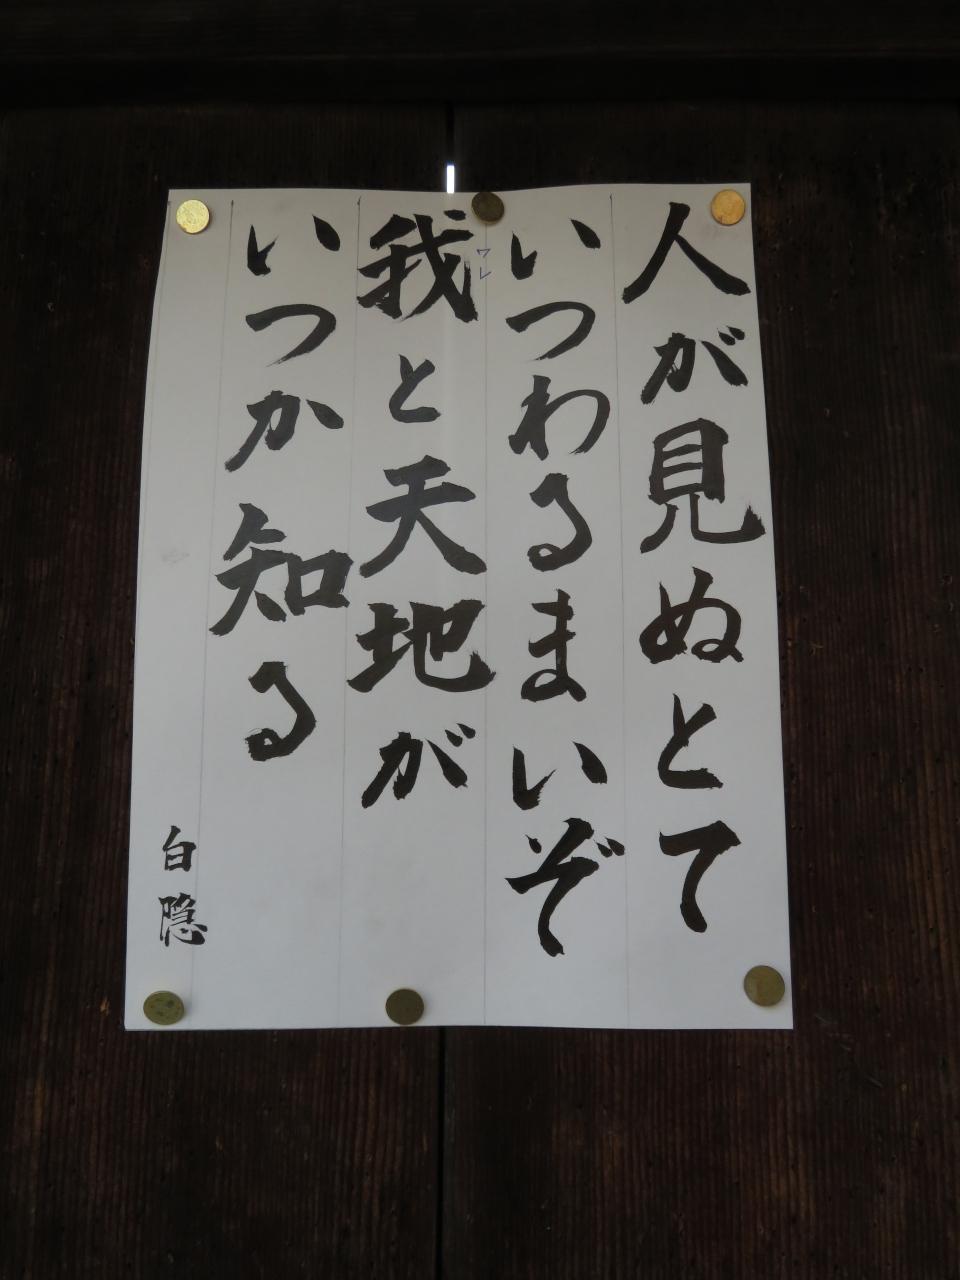 人が見ぬとて
いつわるまいぞ
ワレ
我と天地が
いつか知る
白隠